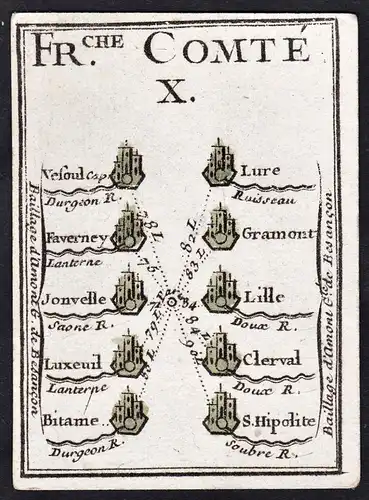 FR.CHE COMTÉ
X.
Vesoul Cap.
Durgeon R.
Lure
Ruisseau
Faverney
Lanterne
Gramont
Jonvelle
Saone R.
Lille
Doux R.
Luxeuil
Lanterne
Clerval
Doux R.
Bitame..
Durgeon R.
S. Hipolite
Soubre R.
78 L
82 L
76
83 L
79 L
84
90 L
Baillage d'Amont G. de Besançon
Baillage d'Amont G. de Besançon